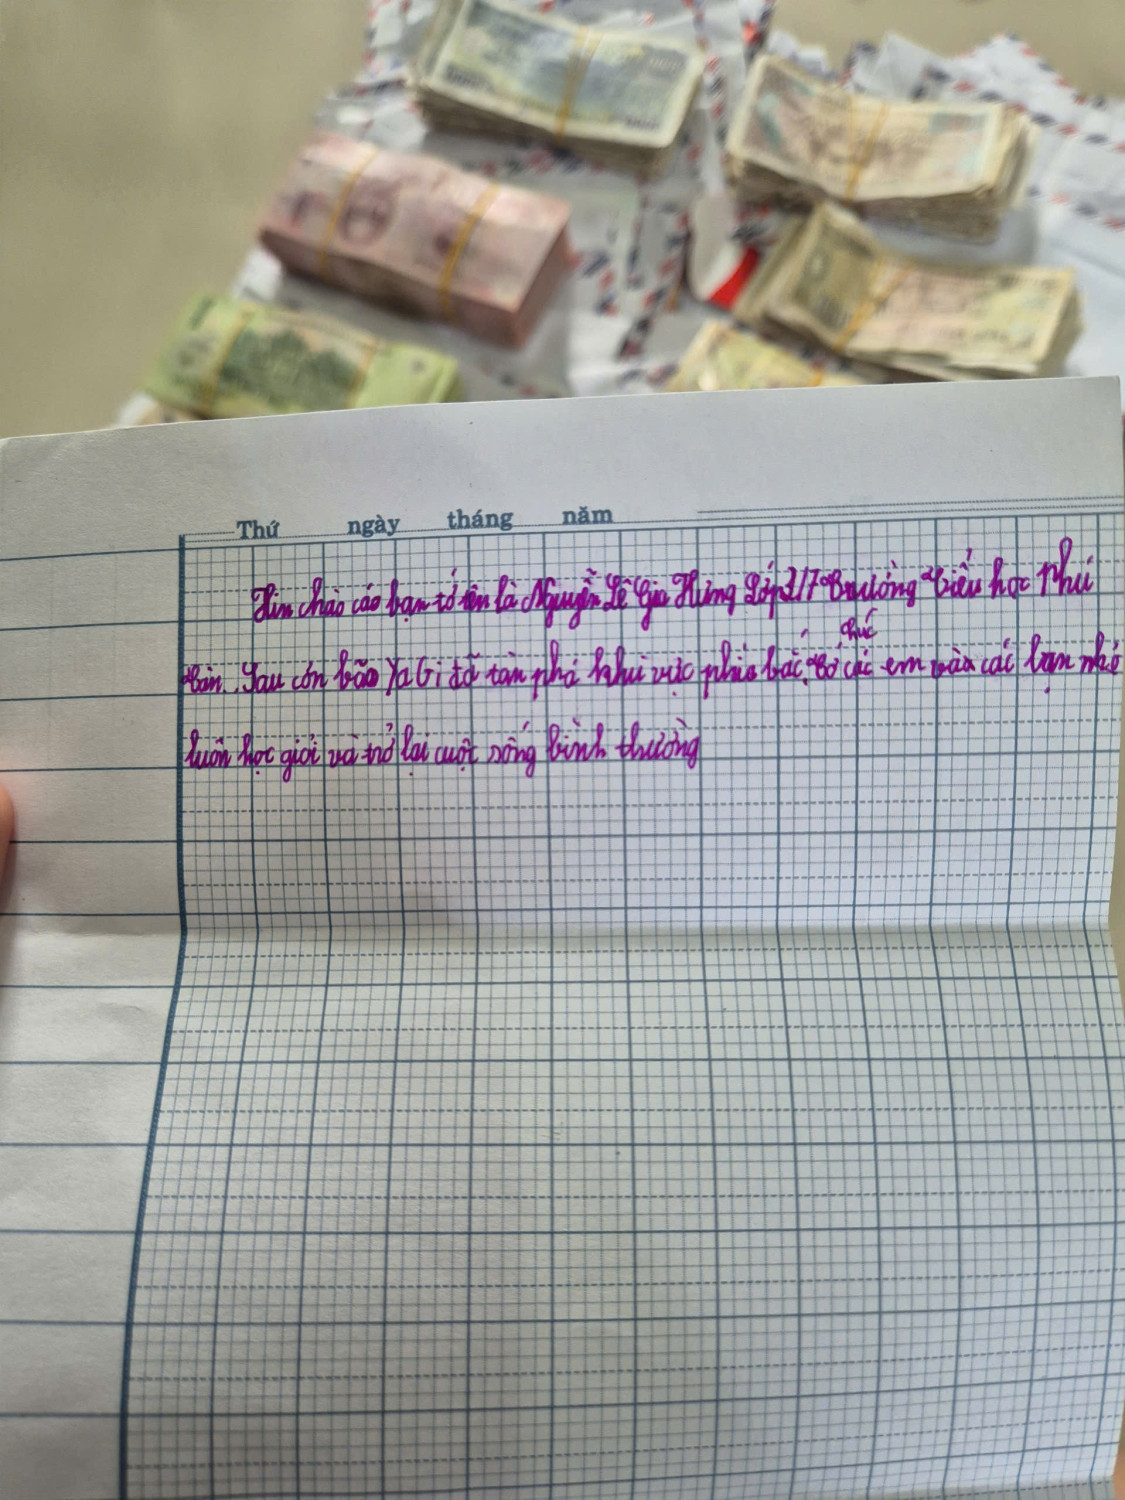 Thứ ngày tháng năm
Xin chào các bạn tớ tên là Nguyễn Lê Gia Hưng Lớp 2/7 Trường Tiểu học Phú
chúc
Tân. Sau cơn bão YaGi đã tàn phá khu vực phía bắc, Tớ các em và các bạn nhỏ
luôn học giỏi và trở lại cuột sống bình thường